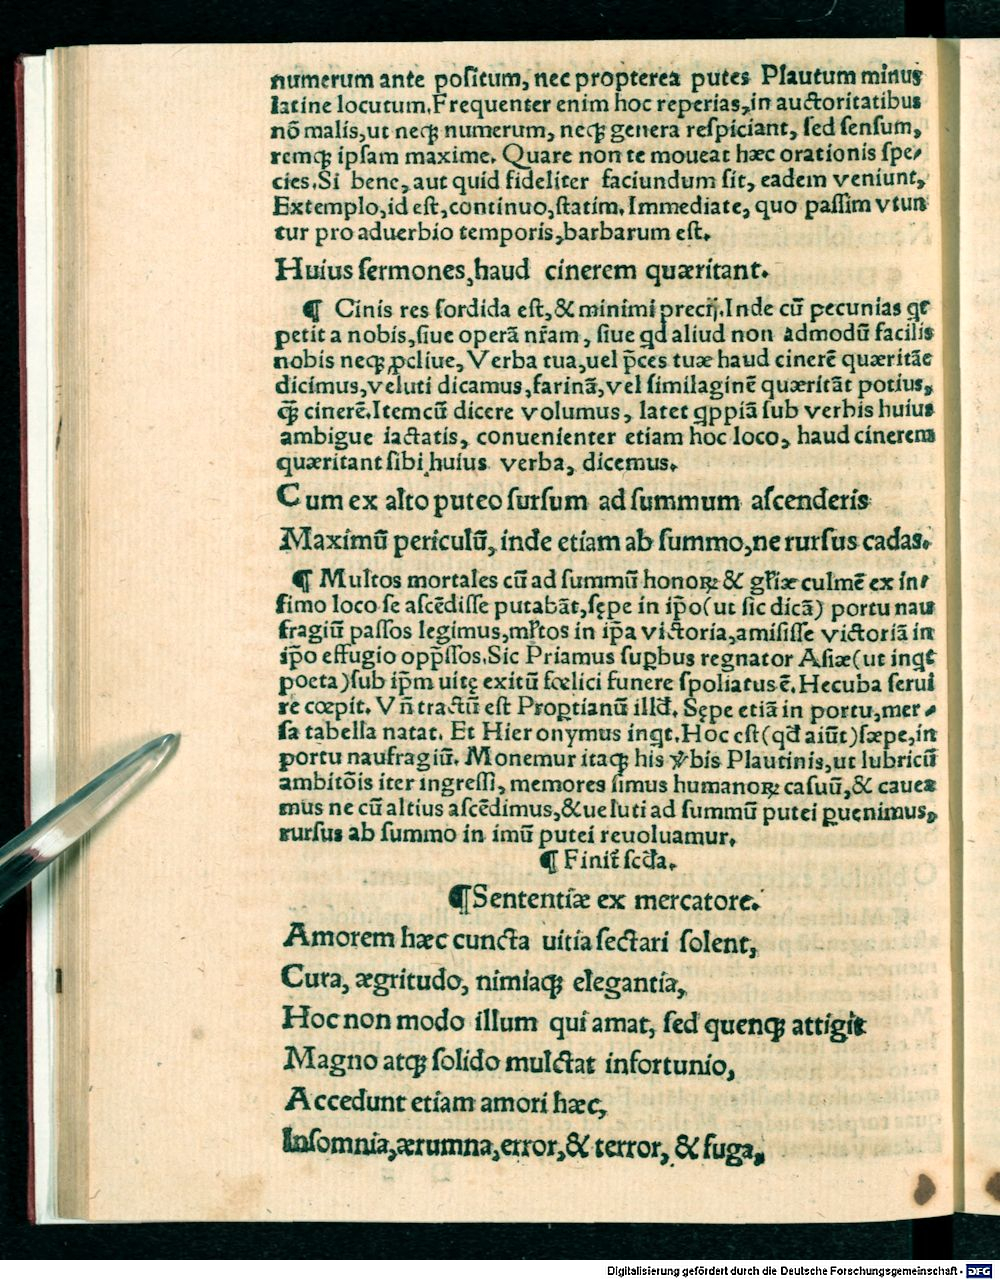 numerum ante poſitum, nec propterea putes Plautum minus
latine locutum. Frequenter enim hoc reperias, in auctoritatibus
nō malis, ut neqꝫ numerum, neqꝫ genera reſpiciant, ſed ſenſum,
remqꝫ ipſam maxime. Quare non te moueat hæc orationis ſpe⸗
cies. Si bene, aut quid fideliter faciundum ſit, eadem veniunt,
Extemplo, id eſt, continuo, ſtatim. Immediate, quo paſſim vtun
tur pro aduerbio temporis, barbarum eſt.
Huius ſermones, haud cinerem quæritant.
¶ Cinis res ſordida eſt, & minimi precij. Inde cū pecunias qs
petit a nobis, ſiue operā nr̄am, ſiue qd aliud non admodū facilis
nobis neqꝫ ꝓcliue, Verba tua, uel p̄ces tuæ haud cinerē quæritāt
dicimus, veluti dicamus, farinā, vel ſimilaginē quæritāt potius,
qꝫ̄ cinerē. Item cū dicere volumus, latet qppiā ſub verbis huius
ambigue iactatis, conuenienter etiam hoc loco, haud cinerem
quæritant ſibi huius verba, dicemus.
Cum ex alto puteo ſurſum ad ſummum aſcenderis
Maximū periculū, inde etiam ab ſummo, ne rurſus cadas.
¶ Multos mortales cū ad ſummū honoꝝ & gł'iæ culmē ex in⸗
fimo loco ſe aſcēdiſſe putabāt, ſępe in ip̄o (ut ſic dicā) portu nau
fragiū paſſos legimus, mł'tos in ip̄a victoria, amiſiſſe victoriā in
ip̄o effugio opp̄ſſos. Sic Priamus ſuꝑbus regnator Aſiæ (ut inqt
poeta) ſub ip̄m uitę exitū fœlici funere ſpoliatus ē. Hecuba ſerui
re cœpit. Vn̄ tractū eſt Proꝑtianū illd̄. Sępe etiā in portu, mer⸗
ſa tabella natat. Et Hieronymus inqt. Hoc eſt (qd̄ aiūt) ſæpe, in
portu naufragiū. Monemur itaqꝫ his v̄bis Plautinis, ut lubricū
ambitōis iter ingreſſi, memores ſimus humanoꝝ caſuū, & cauea
mus ne cū altius aſcēdimus, & ueluti ad ſummū putei ꝑuenimus,
rurſus ab ſummo in imū putei reuoluamur.
¶ Finit ſcd̄a.
¶ Sententiæ ex mercatore.
Amorem hæc cuncta uitia ſectari ſolent,
Cura, ægritudo, nimiaqꝫ elegantia,
Hoc non modo illum qui amat, ſed quenqꝫ attigit
Magno atqꝫ ſolido mulctat infortunio,
Accedunt etiam amori hæc,
Inſomnia, ærumna, error, & terror, & fuga,
Digitalisierung gefördert durch die Deutsche Forschungsgemeinschaft - DFG